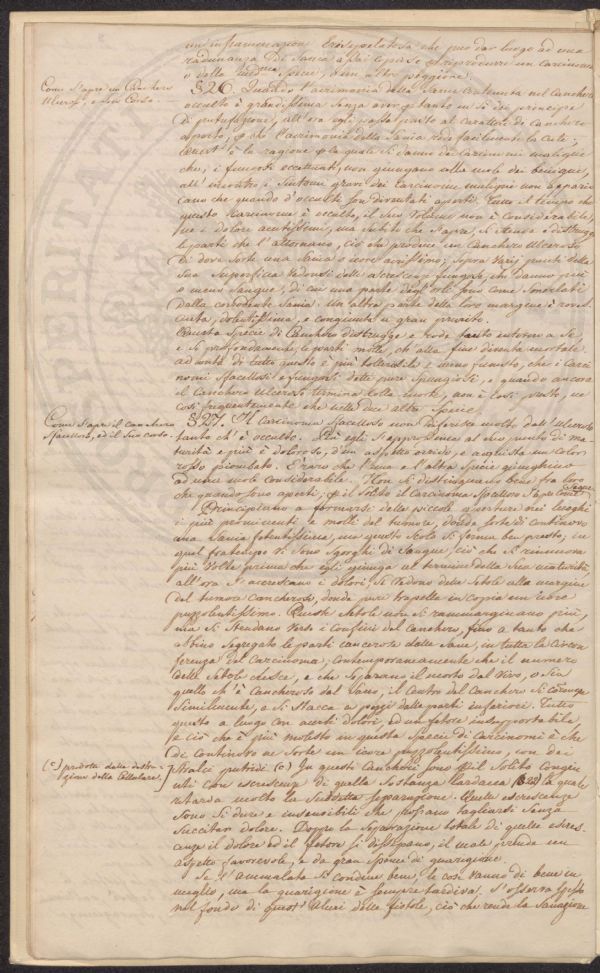 un infiammazione Erisipelatosa che può dar luogo ad una
radunanza di Sanie assai copiosa
o della med.ma Specie, o un altro peggiore.
Come s'apre un Canchero
Ulceroso, e suo Corso.
§ 26. Quando l'acrimonia della Sanie contenuta nel Canchero
occulto è grandissima senza aver tanto in se dei principj
di putrefazione, all'ora egli passa presto al Carattere di Canchero
aperto, che l'acrimonia della Sanie rode facilmente la Cute;
quest' è la ragione p la quale si danno dei Carcinomi maligni
che, i fungosi eccettuati, non giungano alla mole dei benigni,
all' incontro i Sintomi gravi dei Carcinomi maligni non appari
cano che quando d'occulti son diventati aperti. Tutto il tempo che
questo Carcinoma è occulto, il suo Volume non è Considerabile,
ne i dolori acutissimi, ma subito che s'apre, si stende e distrugge
le parti che l'attorniano, ciò che produce un Canchero Ulceroso
di dove sorte una Sania o icore acrissimo; Sopra varj punti della
Sua Superficie vedonsi delle escrescenze fungose, che danno più
o meno Sangue, di cui una parte degl'orli sono come smerlati
dalla corrodente Sania. Un'altra parte delle loro margini è rove-
sciata, dolentissima, e congiunta a gran prurito.
Questa Specie di Canchero distrugge e rode tanto intorno a Se
e si profondamente le parti molle, ch'alla fine diventa mortale.
ad onta di tutto questo è più tollerabile e meno funesto, che i Carci
nomi Sfacellosi e fungosi delle pure Spungiosi, e quando ancora
il Canchero Ulceroso termina colla morte, non è così presto, ne
così frequentemente che nelle due altre Specie.
Come s'apre il canchero
Sfacelloso, ed il suo corso.
§ 27. Il Carcinoma Sfacelloso non differisce molto dall' Ulceroso
tanto ch' è occulto. Più egli s'approssima al suo punto di ma-
turità e più è doloroso, d'un aspetto orrido, e acquista un color
rosso piombato. È raro che l'una e l'altra Specie giunghino
ad una mole considerabile. Non si distinguono bene fra loro
che quando sono aperti, p il solito il Carcinoma Sfacelloso s'apre Come Segue.
Principiano a formarsi delle piccole aperture nei luoghi
i più prominenti e molli del tumore, dove sorte di continovo
una Sania fetentissima, ma questo Scolo si ferma ben presto; in
quel frattempo vi sono sgorghi di Sangue, ciò che si rinnova
più volte prima che egli giunga al termine della Sua maturità,
all'ora s'accrescano i dolori; Si vedono delle Setole alla margine
del tumore Cancheroso, donde pure trapella in copia un icore
puzzolentissimo. Queste Setole non si rammarginano più,
ma si stendano verso i confini del Canchero, fino a tanto che
abbino Segregato le parti cancerose dalle Sane, in tutta la circon
ferenza del Carcinoma; Contemporaneamente che il numero
delle Setole cresce, e che separano il morto dal vivo, o sia
quello ch'è Cancheroso dal Sano, il Centro del Canchero si corrompe
similmente, e si stacca a pezzi dalle parti inferiori. Tutto
questo a lungo con acerbi dolori, ed un fetore insopportabile,
e ciò che è più molesto in questa Specie di Carcinomi è che
di continovo ne Sorte un icore puzzolentissimo con dei
(c) prodotti dalla distru-
zione della Cellulare.
Stralci putridi (c) In questi Cancheri sono p il Solito Congiu
nti con escrescenze di quella Sostanza Lardacea (§ 22) la quale
ritarda molto la Suddetta Separazione. Quelle escrescenze
sono si dure e insensibili che possano tagliarsi Senza
suscitar dolore. Doppo la Separazione totale di quelle escres-
cenze il dolore ed il fetore si dissipano, il male prende un
aspetto favorevole, e da gran Speme di guarigione.
Se l'ammalato si conduce bene, le cose vanno di bene in
meglio, ma la guarigione è sempre tardiva. S'osserva spesso
nel fondo di quest' Ulceri delle fistole, ciò che rende la Sanazione